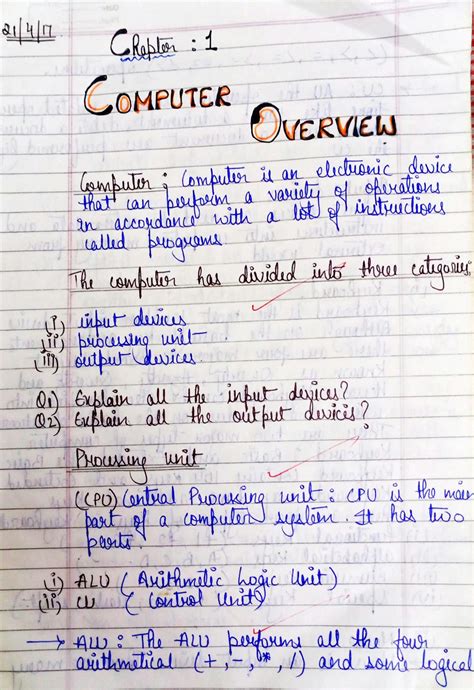 21/4/17
Chapter : 1
COMPUTER
OVERVIEW
Computer : Computer is an electronic device
that can perform a variety of operations
in accordance with a lot of instructions
called programs.
The computer has divided into three categories.
i) input devices
ii) processing unit.
iii) output devices.
Q1) Explain all the input devices?
Q2) Explain all the output devices?
Processing unit
(CPU) Central Processing unit : CPU is the main
part of a computer system. It has two
parts.
i) ALU ( Arithmetic Logic Unit)
ii) CU ( Control Unit)
→ ALU : The ALU performs all the four
arithmetical (+, -, *, /) and some logical